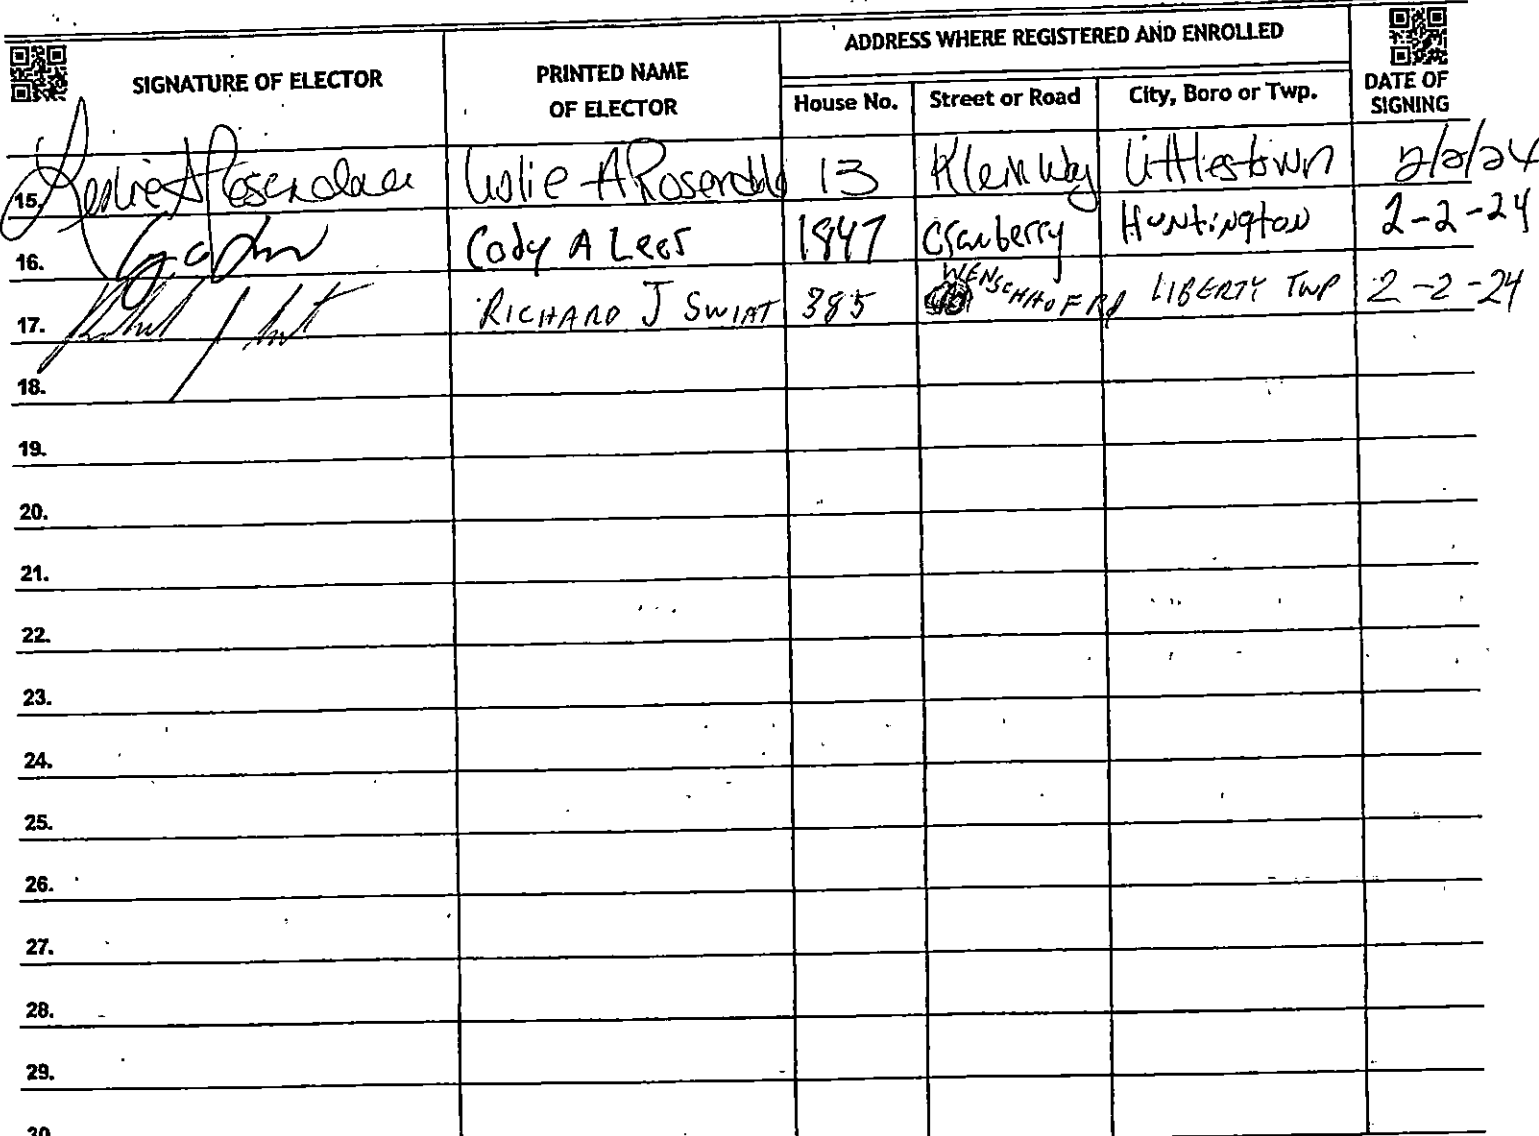 ADDRESS WHERE REGISTERED AND ENROLLED
SIGNATURE OF ELECTOR PRINTED NAME OF ELECTOR House No. Street or Road City, Boro or Twp. DATE OF SIGNING
15. Leslie A Rosendale Leslie A Rosendale 13 Klein Way Littlestown 2/2/24
16. Cody A Lees 1847 Cranberry Huntington 2-2-24
17. RICHARD J SWIAT 385 WENSCHHOF RD LIBERTY TWP 2-2-24
18.
19.
20.
21.
22.
23.
24.
25.
26.
27.
28.
29.
30.